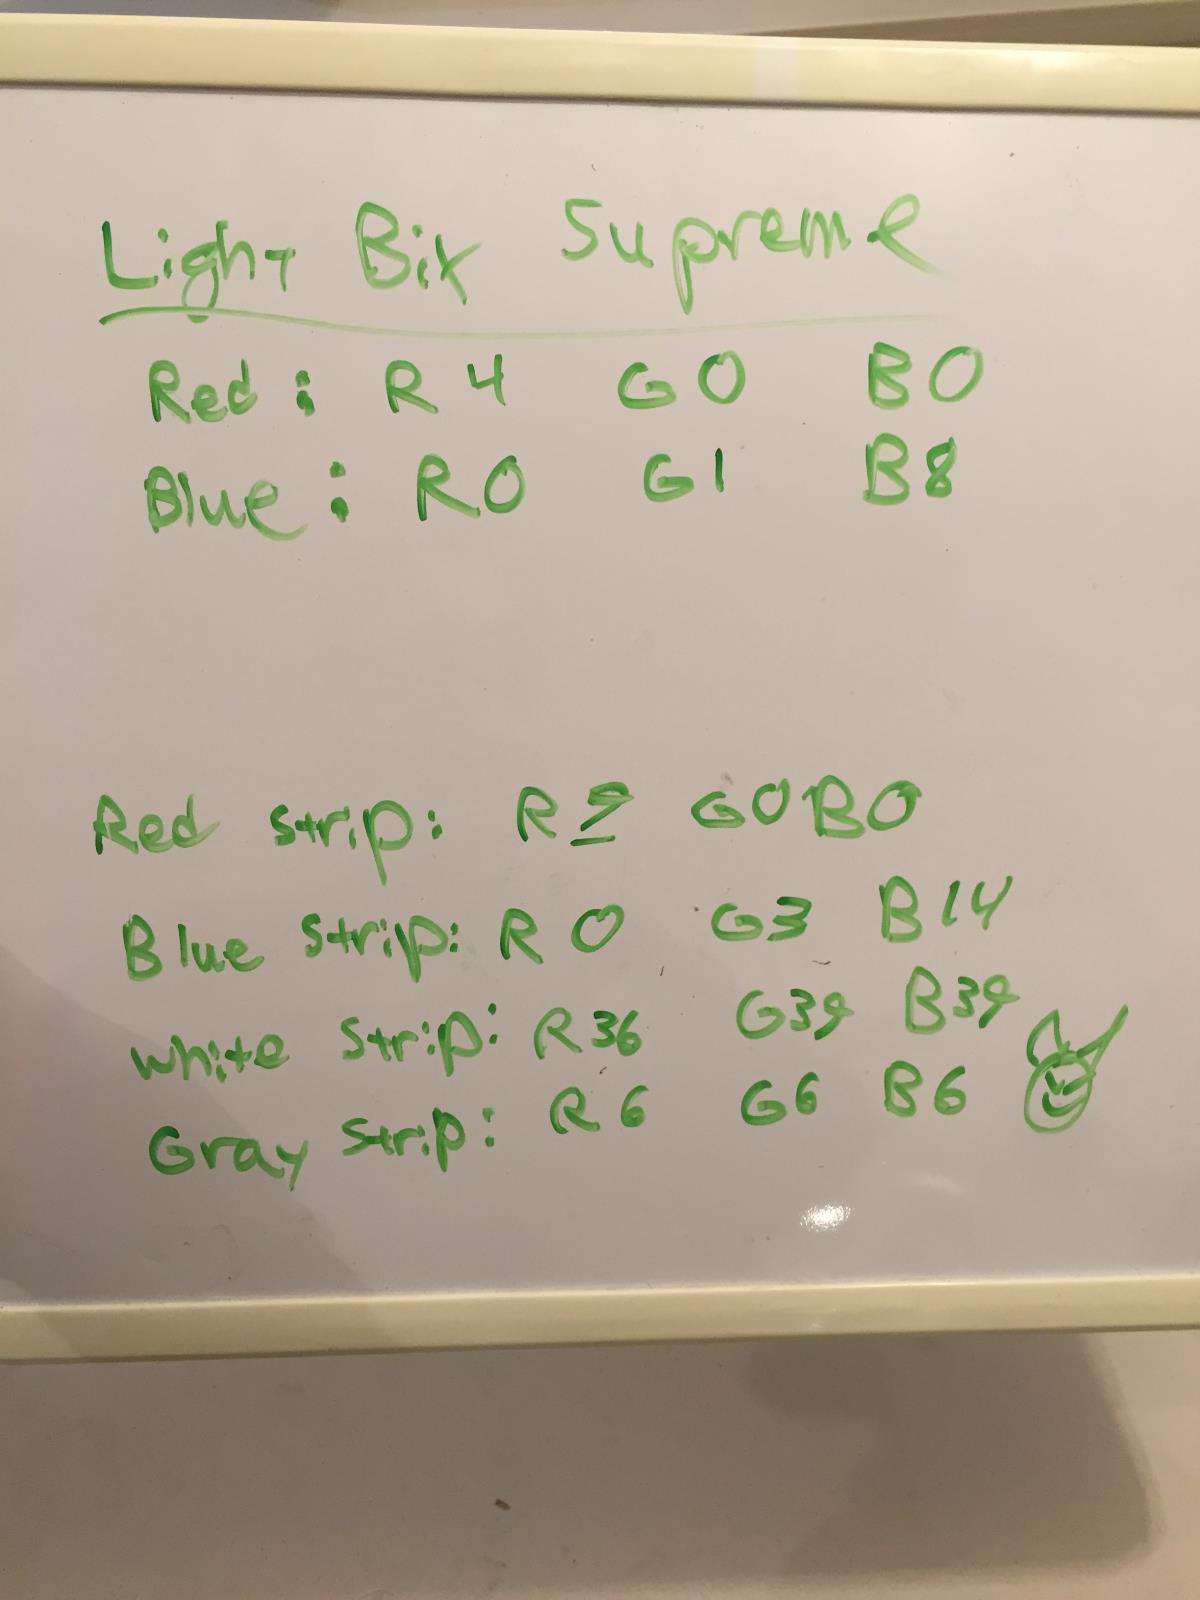 Light Bit Supreme
Red: R 4 G0 B0
Blue: R0 G1 B8
Red strip: R 9 G0 B0
Blue strip: R 0 G3 B14
white strip: R36 G39 B39
Gray strip: R6 G6 B6